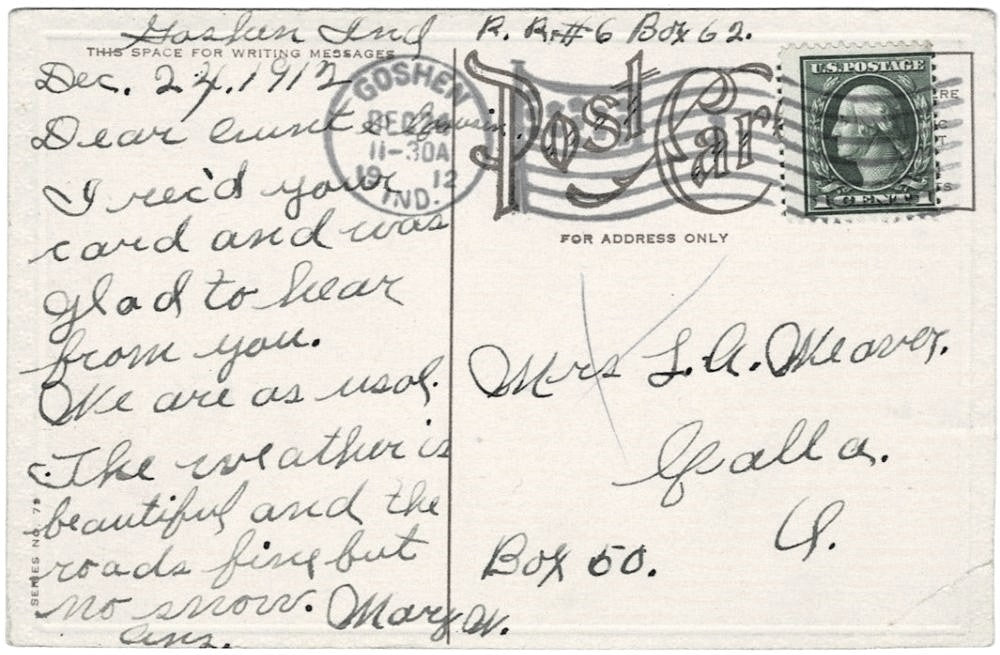 Goshen Ind R. R. #6 Box 62.
THIS SPACE FOR WRITING MESSAGES
Dec. 24, 1912
Dear Aunt & Cousin,
I rec'd your
card and was
glad to hear
from you.
We are as usal.
The weather is
beautiful and the
roads fine but
no snow. Mary W.
Ans.
SERIES NO. 79
GOSHEN
DEC
11-30A
19 12
IND.
Post Card
U.S. POSTAGE
1 CENT 1
FOR ADDRESS ONLY
Mrs L. A. Weaver.
Galla.
O.
Box 50.